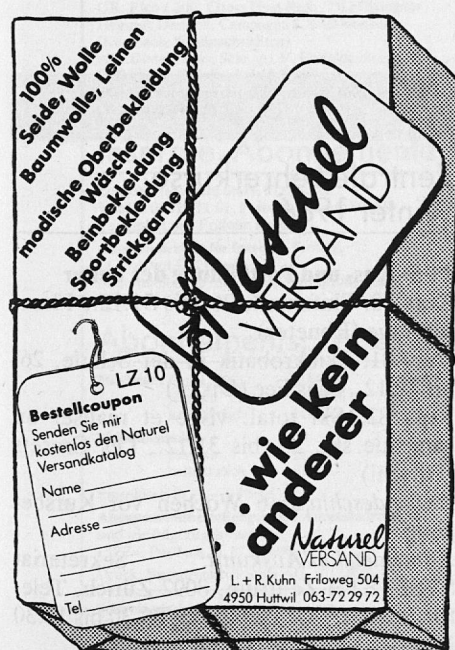 100%
Seide, Wolle
Baumwolle, Leinen
modische Oberbekleidung
Wäsche
Beinbekleidung
Sportbekleidung
Strickgarne
Naturel
VERSAND
... wie kein
anderer
LZ 10
Bestellcoupon
Senden Sie mir
kostenlos den Naturel
Versandkatalog
Name
Adresse
Tel.
Naturel
VERSAND
L + R. Kuhn Friloweg 504
4950 Huttwil 063-72 29 72